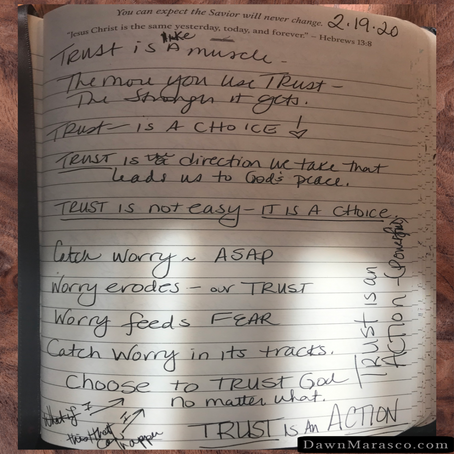 You can expect the Savior will never change.
2.19.20
"Jesus Christ is the same yesterday, today, and forever." ~ Hebrews 13:8
TRUST is like A muscle -
The more you use TRUST -
The Stronger it gets.
TRUST - IS A CHOICE !
TRUST is the direction we take that
leads us to God's peace.
TRUST is not easy - IT IS A CHOICE
Catch Worry ~ ASAP
Worry erodes - our TRUST
Worry feeds FEAR
Catch Worry in its tracks.
Choose to TRUST God
no matter what.
What if I
this that
happen
TRUST Is An ACTION
TRUST is an
ACTION - (powerful)
DawnMarasco.com